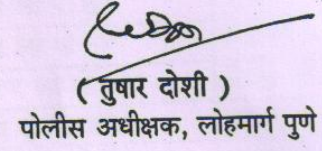 ( तुषार दोशी )
पोलीस अधीक्षक, लोहमार्ग पुणे